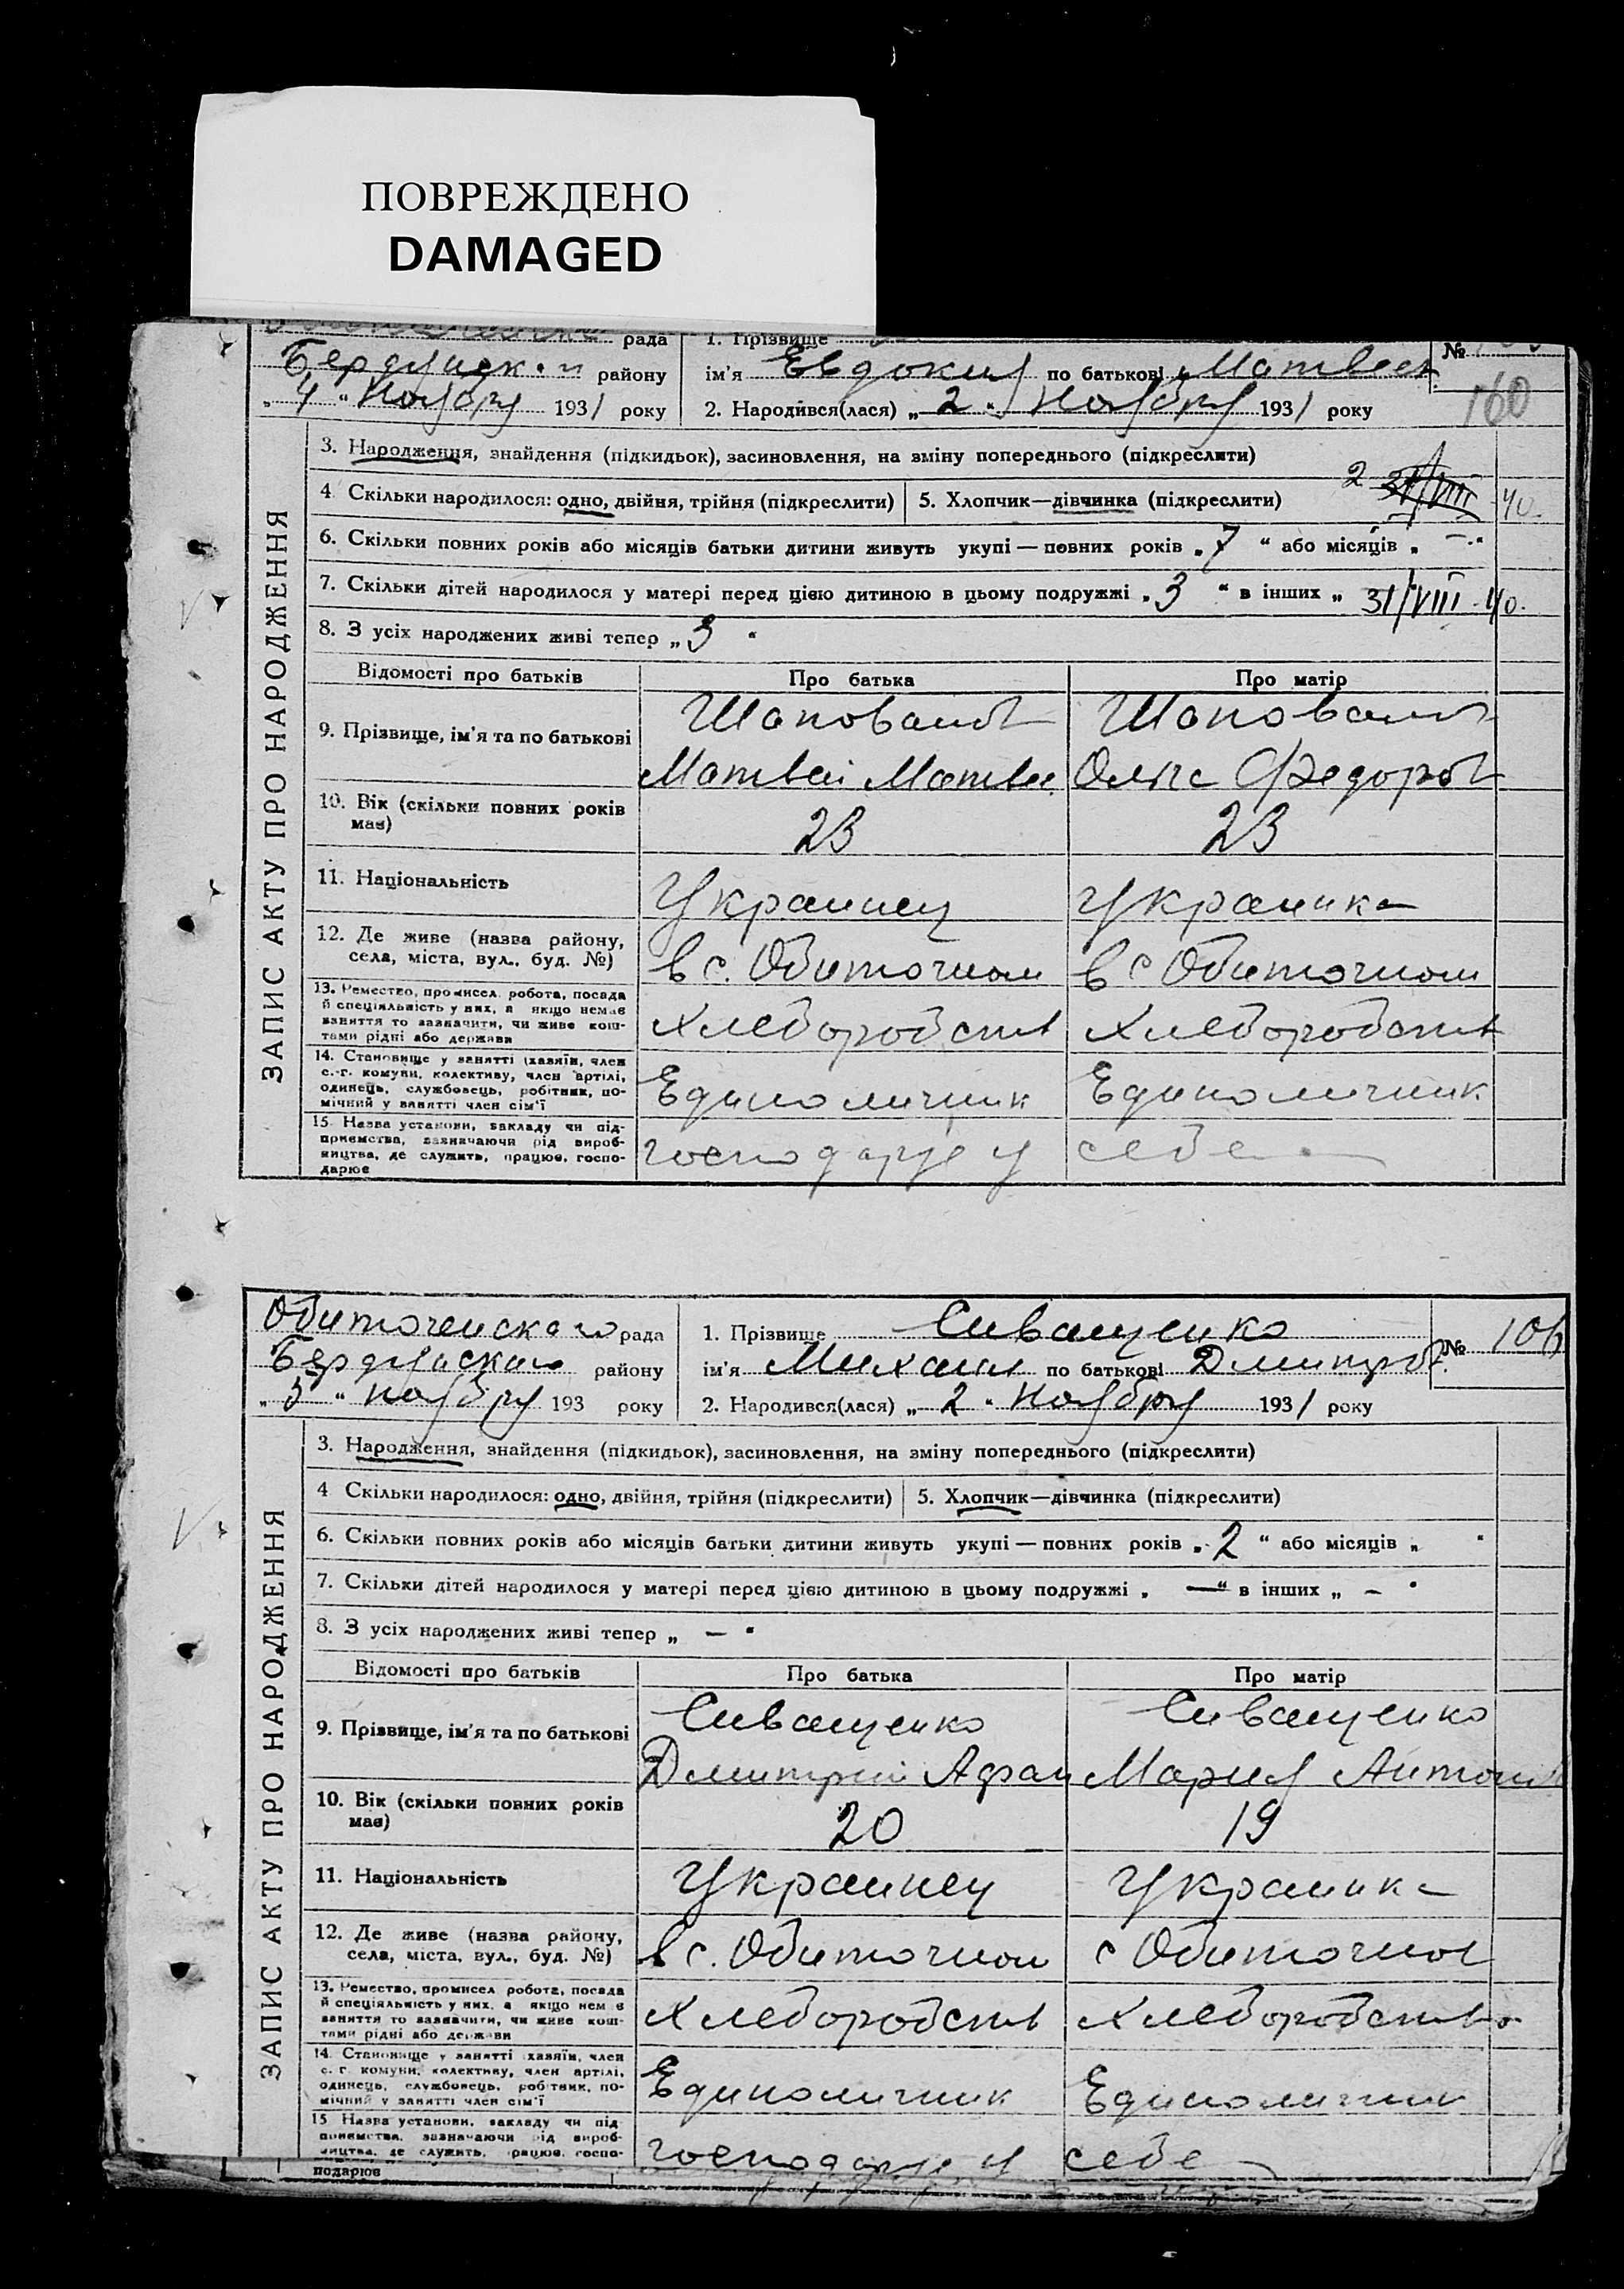 ПОВРЕЖДЕНО
DAMAGED
рада 1. Прізвище №
Бердянск району ім'я Евдокия по батькові Матвеев
„ 4 “ Ноября 1931 року 2. Народився(лася) „ 2 “ Ноября 1931 року 160
3. Народження, знайдення (підкидьок), засиновлення, на зміну попереднього (підкреслити)
4 Скільки народилося: одно, двійня, трійня (підкреслити) 5. Хлопчик—дівчинка (підкреслити) 2 31/VIII 40.
6. Скільки повних років або місяців батьки дитини живуть укупі — повних років „ 7 “ або місяців „ — “
7. Скільки дітей народилося у матері перед цією дитиною в цьому подружжі „ 3 “ в інших „ 31/VIII 40.
8. З усіх народжених живі тепер „ 3 “
Відомості про батьків Про батька Про матір
9. Прізвище, ім'я та по батькові Шаповалов Шаповалов
Матвей Матвее Ольга Федоров
10. Вік (скільки повних років має) 23 23
11. Національність Украинец Украинка
12. Де живе (назва району, села, міста, вул., буд. №) в с. Обиточном в с Обиточном
13. Ремество, промисел, робота, посада й спеціяльність у них, а якщо немає заняття то зазначити, чи живе коштами рідні або держави Хлеборобств Хлеборобств
14. Становище у занятті (хазяїн, член с.-г. комуни, колективу, член артілі, одинець, службовець, робітник, помічний у занятті член сім'ї Единоличник Единоличник
15. Назва установи, закладу чи підприємства, зазначаючи рід виробництва, де служить, працює, господарює господарує у себе
ЗАПИС АКТУ ПРО НАРОДЖЕННЯ
Обиточенского рада 1. Прізвище Сиващенко № 106
Бердянского району ім'я Михаил по батькові Дмитров
„ 5 “ ноября 193 року 2. Народився(лася) „ 2 “ Ноября 1931 року
3. Народження, знайдення (підкидьок), засиновлення, на зміну попереднього (підкреслити)
4 Скільки народилося: одно, двійня, трійня (підкреслити) 5. Хлопчик—дівчинка (підкреслити)
6. Скільки повних років або місяців батьки дитини живуть укупі — повних років „ 2 “ або місяців „ “
7. Скільки дітей народилося у матері перед цією дитиною в цьому подружжі „ — “ в інших „ — “
8. З усіх народжених живі тепер „ — “
Відомості про батьків Про батька Про матір
9. Прізвище, ім'я та по батькові Сиващенко Сиващенко
Дмитрий Афан Мария Антон
10. Вік (скільки повних років має) 20 19
11. Національність Украинец Украинка
12. Де живе (назва району, села, міста, вул., буд. №) в с. Обиточном с Обиточное
13. Ремество, промисел робота, посада й спеціяльність у них, а якщо нем є заняття то зазначити, чи живе коштами рідні або держави Хлеборобств Хлеборобство
14. Становище у занятті хазяїн, член с. г. комуни, колективу, член артілі, одинець, службовець, робітник, помічний у занятті член сім'ї Единоличник Единоличник
15 Назва установи, закладу чи підприємства, зазначаючи рід виробництва, де служить, працює, госпо- господарує у себе
подарює
ЗАПИС АКТУ ПРО НАРОДЖЕННЯ